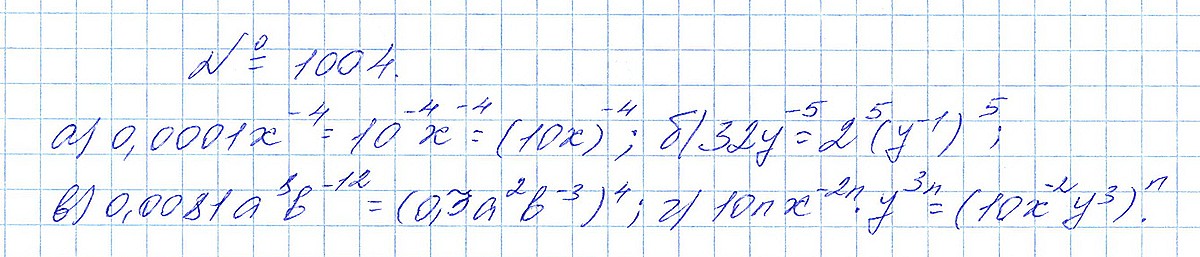 № 1004.
а) 0,0001x⁻⁴ = 10⁻⁴x⁻⁴ = (10x)⁻⁴; б) 32y⁻⁵ = 2⁵(y⁻¹)⁵;
в) 0,0081a⁸b⁻¹² = (0,3a²b⁻³)⁴; г) 10nx⁻²ⁿ·y³ⁿ = (10x⁻²y³)ⁿ.